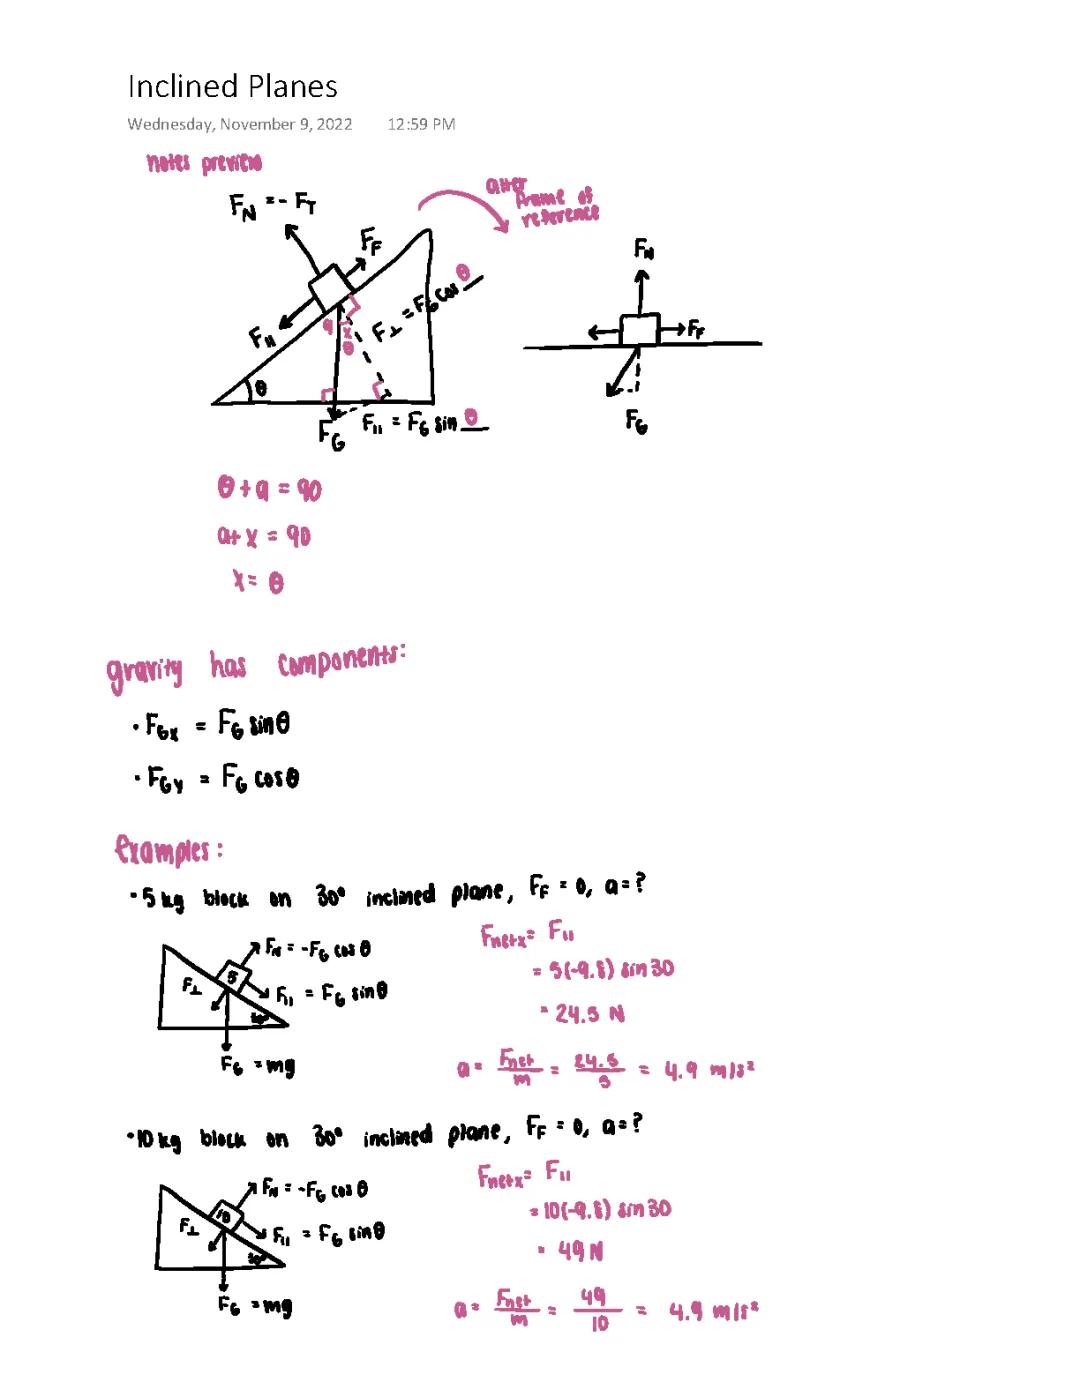 Inclined Planes
Wednesday, November 9, 2022 12:59 PM
notes preview
F_N = - F_T
after
frame of
reference
F_F
F_N
F_⊥ = F_G cos θ
a
x
θ
θ
F_G
F_∥ = F_G sin θ
F_N
F_F
F_G
θ + a = 90
a + x = 90
x = θ
gravity has components:
· F_Gx = F_G sin θ
· F_Gy = F_G cos θ
Examples:
· 5 kg block on 30° inclined plane, F_F = 0, a = ?
F_N = -F_G cos θ
5
F_⊥
F_∥ = F_G sin θ
30°
F_G = mg
F_netx = F_∥
= 5(-9.8) sin 30
= 24.5 N
a = F_net/m = 24.5/5 = 4.9 m/s²
· 10 kg block on 30° inclined plane, F_F = 0, a = ?
F_N = -F_G cos θ
10
F_⊥
F_∥ = F_G sin θ
30°
F_G = mg
F_netx = F_∥
= 10(-9.8) sin 30
= 49 N
a = F_net/m = 49/10 = 4.9 m/s²